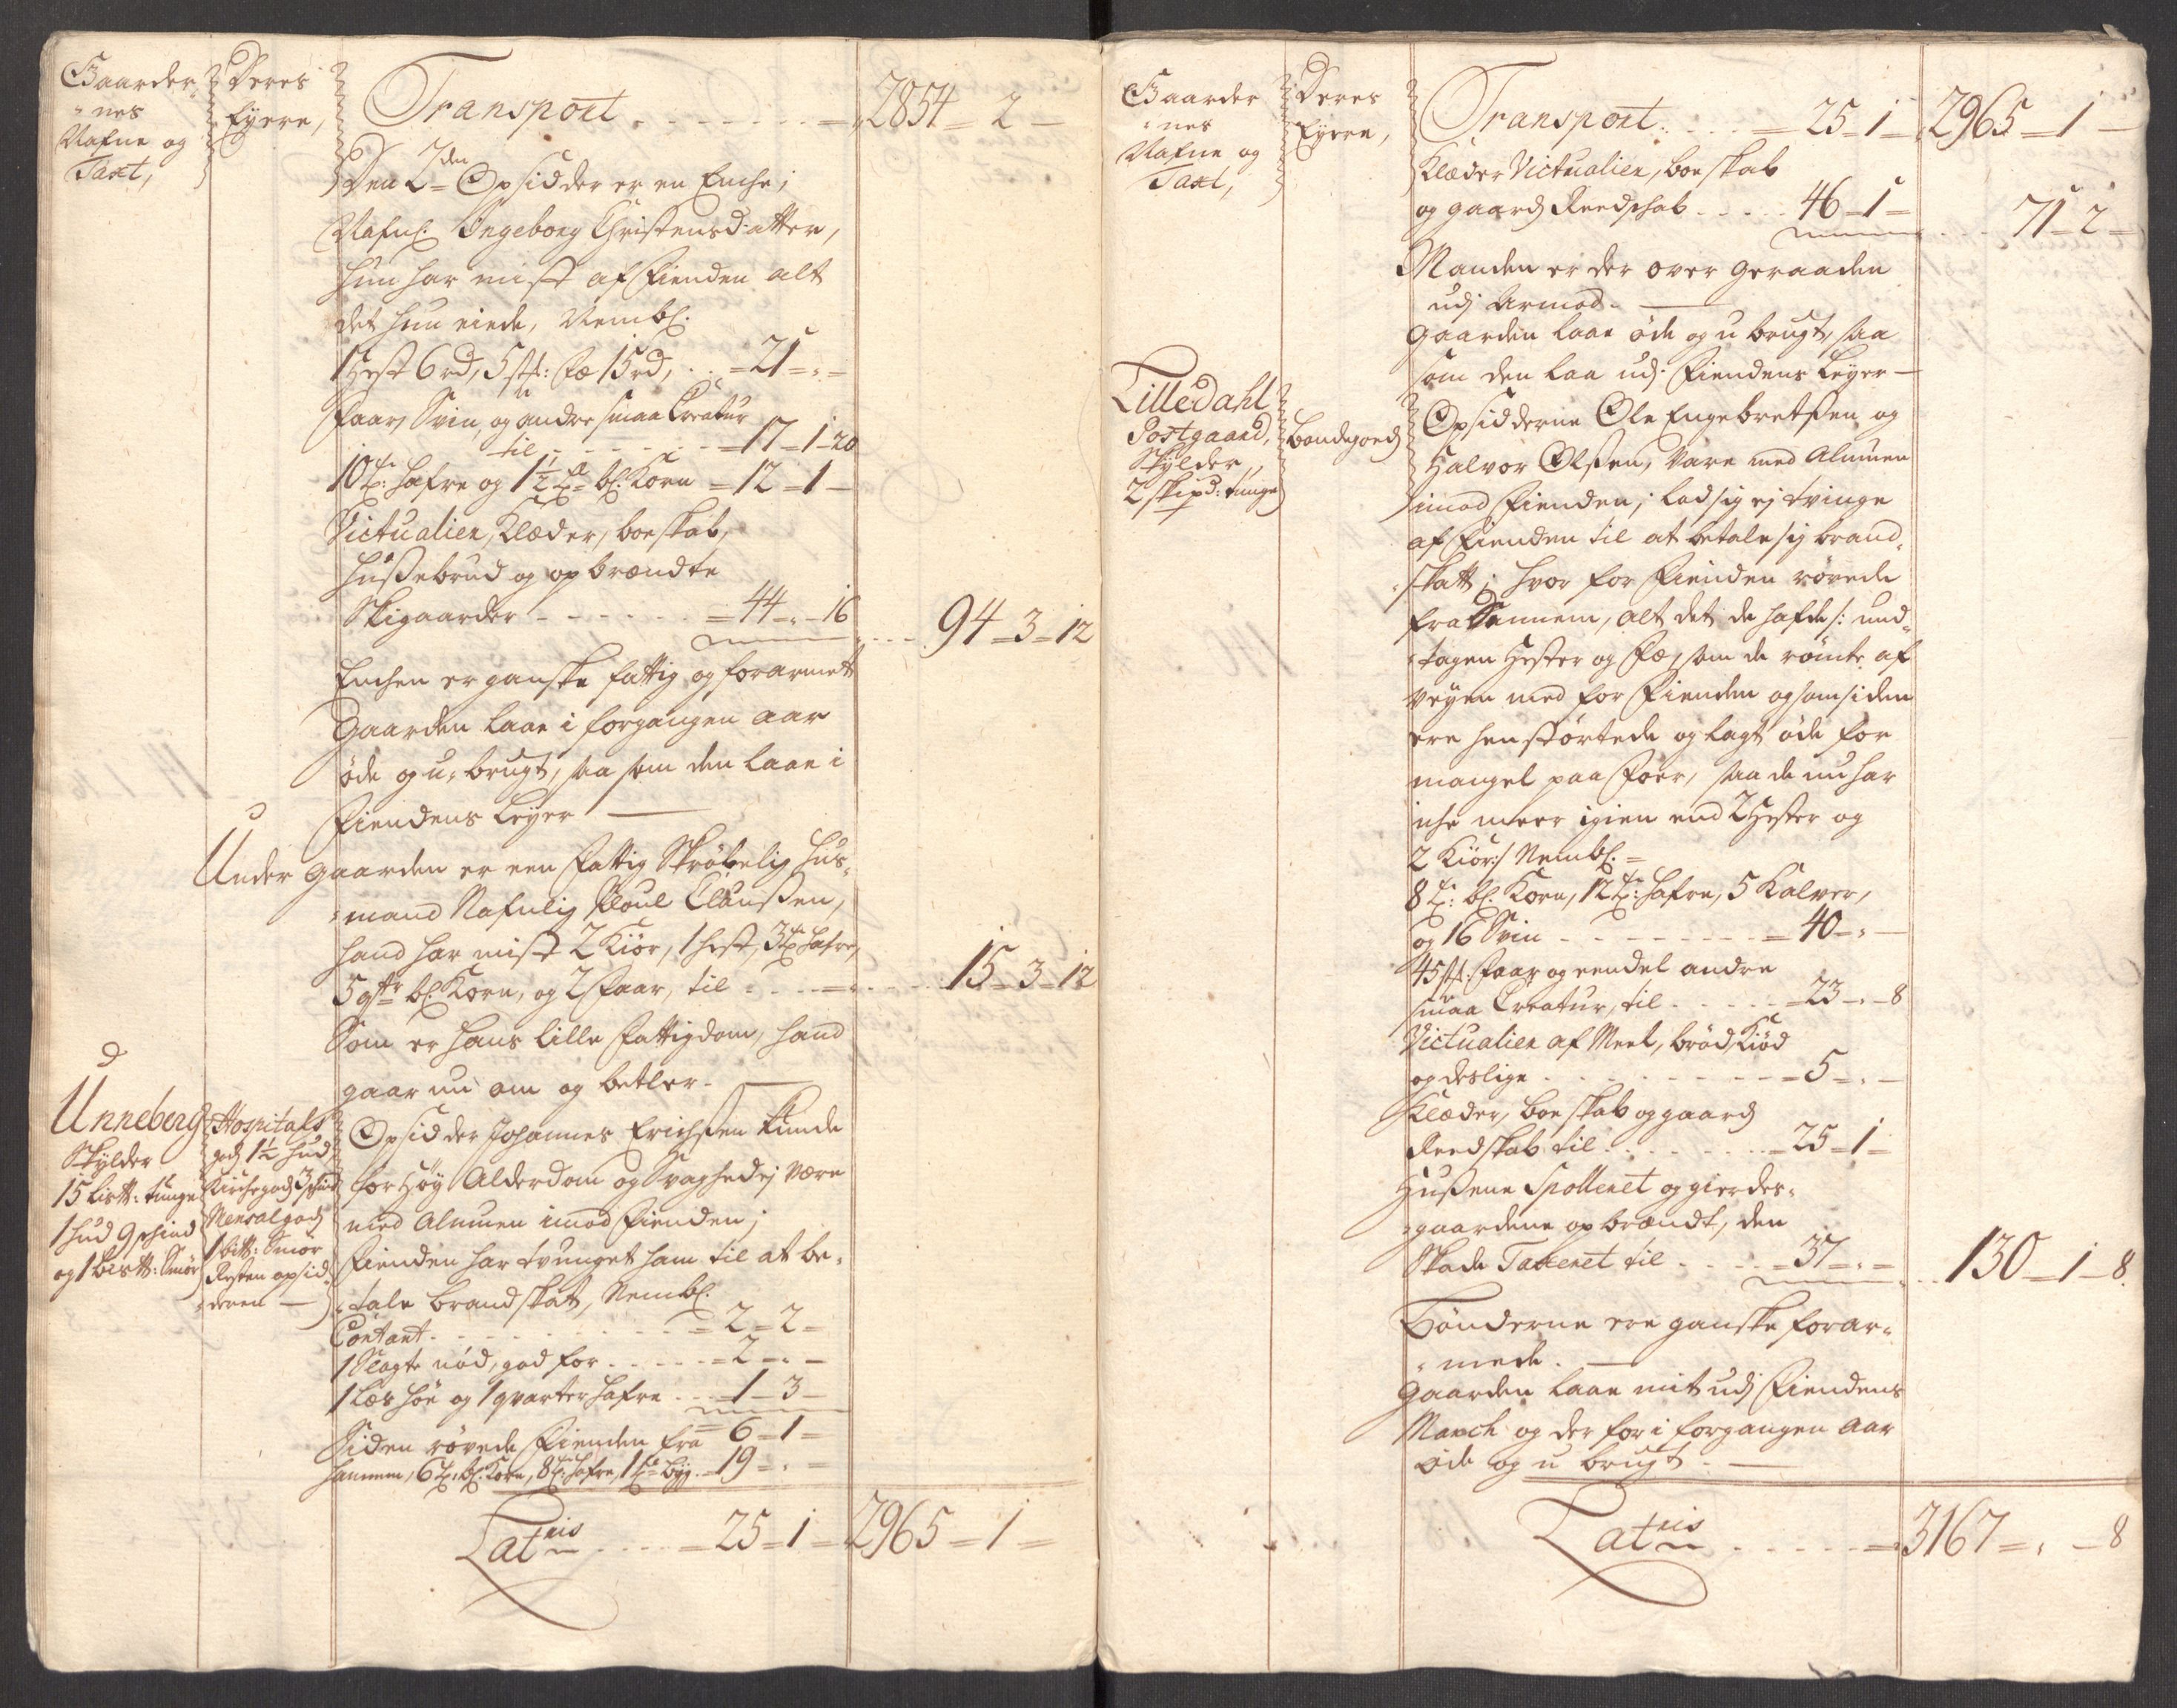 Gaarder-
nes
Nafne og
Taxt,
Deres
Eyere,
Transport . . . . . . . 2854 = 2 –
Den 2den Opsidder er en Enche;
Nafnl: Ingeborg Christensdatter,
hun har mist af Fienden alt
det hun eiede, Nembl:
1 Hest 6 rd, 5 stk: Fæ 15 rd, . . = 21 = „ =
Faar, Svin, og andre smaa Creatur
til . . . . . = 17 = 1 = 20
10 t: Hafre og 1½ t bl: Korn = 12 = 1 –
Victualier, Klæder, boeskab,
Hussebrud og opbrændte
Skigaarder . . . . . . = 44 = „ – 16
94 = 3 = 12
Enchen er ganske fattig og forarmet
Gaarden laae i forgangen aar
øde og u-brugt, saa som den laae i
Fiendens Leyer —
Under Gaarden er een fattig Skrøbelig Huus-
mand Nafnlig Poul Clausen,
hand har mist 2 Kiør, 1 hest, 3 t hafre,
5 qtr bl: Korn, og 2 Faar, til . . . . . 15 = 3 = 12
Som er hans lille Fattigdom, hand
gaar nu om og betler. —
Unneberg
Skylder
15 Listt: tunge
1 hud 9 skind
og 1 bistt: Smør
Hospitals
gods 1½ hud
Kirchegods 3 skind
Mensalgods
1 bitt: Smør
Resten opsid-
deren —
Opsidder Johannes Erichsen kunde
for Høy Alderdom og Svaghed ej være
med Almuen imod Fienden;
Fienden har tvunget ham til at be-
tale brandskat, Nembl:
Contant . . . . . . . = 2 = 2 –
1 Slagte nød, god for . . . . . = 2 = „ –
1 Læs høe og 1 qvarter hafre . . . 1 = 3 –
6 = 1 =
Siden røvede Fienden fra
hannem, 6 t: bl: Korn, 8 t: hafre, 1 t byg . 19 = „ =
Latuis . . . . = 25 = 1 = 2965 = 1 =
Gaarder
nes
Nafne og
Taxt,
Deres
Eyere,
Transport . . . . = 25 = 1 = 2965 = 1 –
Klæder Victualier, boeskab
og gaards Reedskab . . . . . 46 = 1 = . . . 71 = 2 =
Manden er der over geraaden
udj Armod. —
Gaarden laae øde og u brugt, saa
som den laa udj Fiendens Leyer —
Lilledahl
Postgaard,
Skylder,
2 skipd: tunge
bondegods
Opsidderne Ole Engebretsen og
Halvor Olsen, Vare med Almuen
imod Fienden; lod sig ej tvinge
af Fienden til at betale sig brand-
skatt; hvor for Fienden røvede
fra dennem, alt det de hafde /: und-
tagen Hester og Fæ, som de rømte af
Veyen med for Fienden og som siden
ere henstørtede og lagt øde for
mangel paa Foer, saa de nu har
iche meer igien end 2 Hester og
2 Kiør :/ Nembl: =
8 t: bl: Korn, 12 t: hafre, 5 Kalver,
og 16 Svin . . . . . . . . = 40 – „ –
45 stk: Faar og eendel andre
smaa Creatur, til . . . . . = 23 – „ – 8
Victualier af Meel, brød, Kiød
og deslige . . . . . . . . = 5 = „ –
Klæder, boeskab og gaards
Reedskab til . . . . . . . = 25 = 1 =
Hussene Spolleret og gierdes-
gaardene opbrændt, den
Skade Taxeret til . . . . = 37 = „ = . . . 130 = 1 = 8.
Bønderne ere ganske forar-
mede. —
Gaarden laae mit udj Fiendens
March og der for i forgangen aar
øde og u brugt. —
Latuis . . . . . . = 3167 = „ – 8